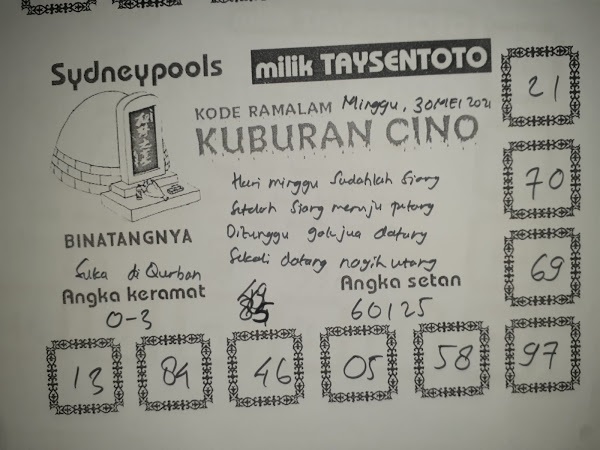 Sydneypools
milik TAYSENTOTO
KODE RAMALAM Minggu, 30 MEI 2021
KUBURAN CINO
Hari minggu Sudahlah Siang
Setelah Siang menuju petang
Ditunggu datang
Sekali datang nagih utang
BINATANGNYA
Suka di Qurban
Angka keramat
0-3
Angka setan
60/25
21
70
69
13
84
46
05
58
97